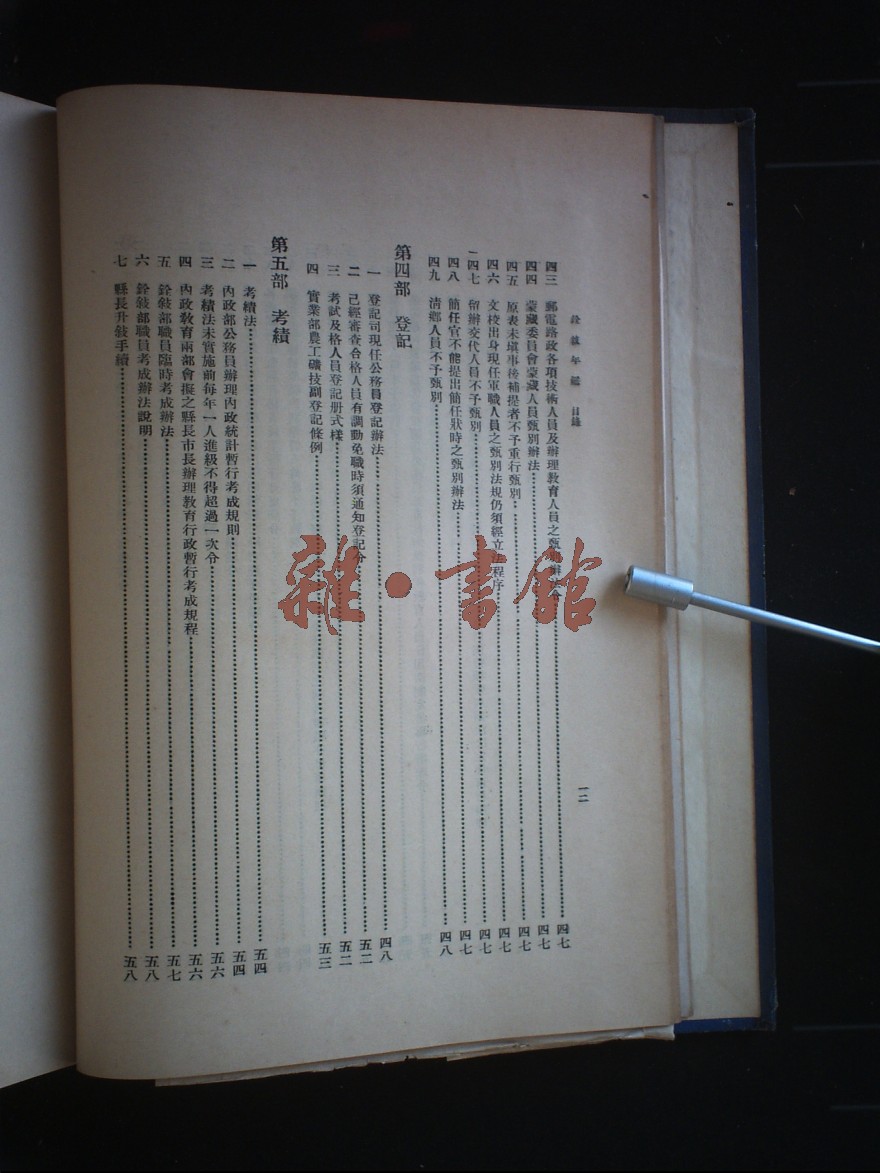 銓敍年鑑 目錄
一二
四三 郵電路政各項技術人員及辦理敎育人員之甄別辦法令 四七
四四 蒙藏委員會蒙藏人員甄別辦法 四七
四五 原表未塡事後補提者不予重行甄別 四七
四六 文校出身現任軍職人員之甄別法規仍須經立法程序 四七
四七 留辦交代人員不予甄別 四七
四八 簡任官不能提出簡任狀時之甄別辦法 四七
四九 淸鄕人員不予甄別 四八
第四部 登記
一 登記司現任公務員登記辦法 四八
二 已經審查合格人員有調動免職時須通知登記令 五二
三 考試及格人員登記册式樣 五二
四 實業部農工礦技副登記條例 五三
第五部 考績
一 考績法 五四
二 內政部公務員辦理內政統計暫行考成規則 五四
三 考績法未實施前每年一人進級不得超過一次令 五六
四 內政敎育兩部會擬之縣長市長辦理敎育行政暫行考成規程 五六
五 銓敍部職員臨時考成辦法 五七
六 銓敍部職員考成辦法說明 五八
七 縣長升敍手續 五八
雜·書館